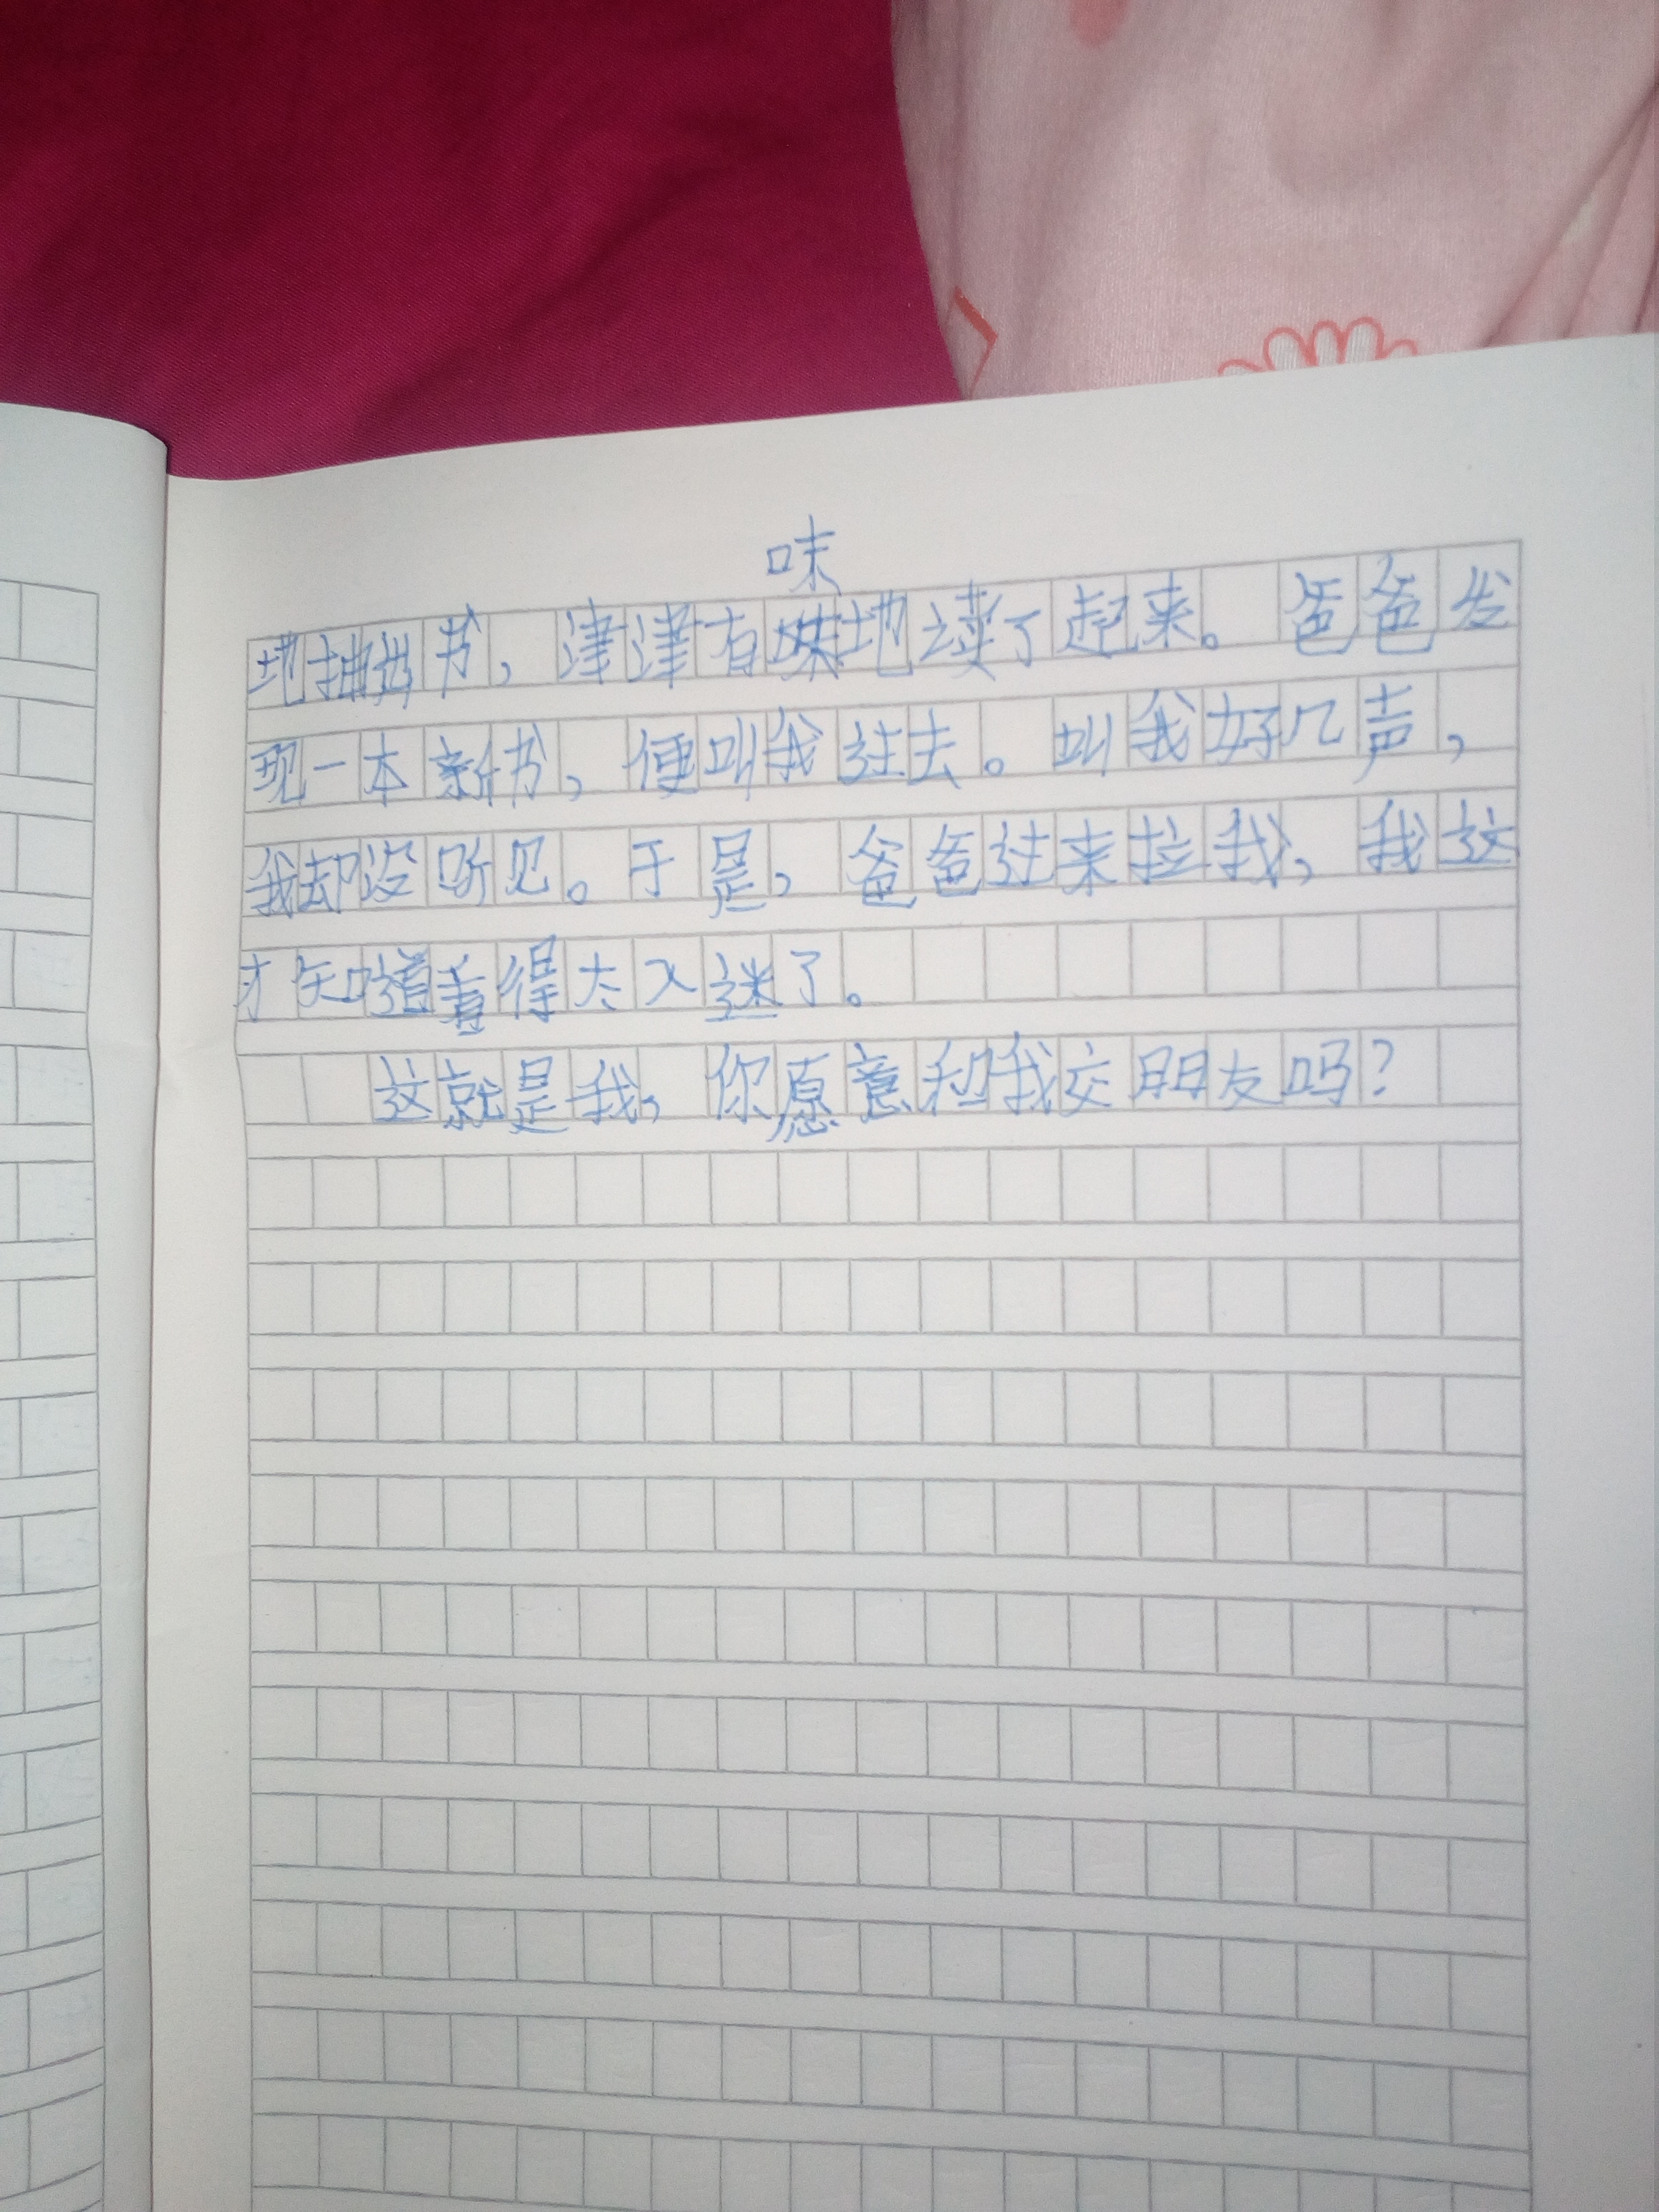 味
地抽出书，津津有味地读了起来。爸爸发
现一本新书，便叫我过去。叫我好几声，
我却没听见。于是，爸爸过来拉我，我这
才知道看得太入迷了。
这就是我，你愿意和我交朋友吗？